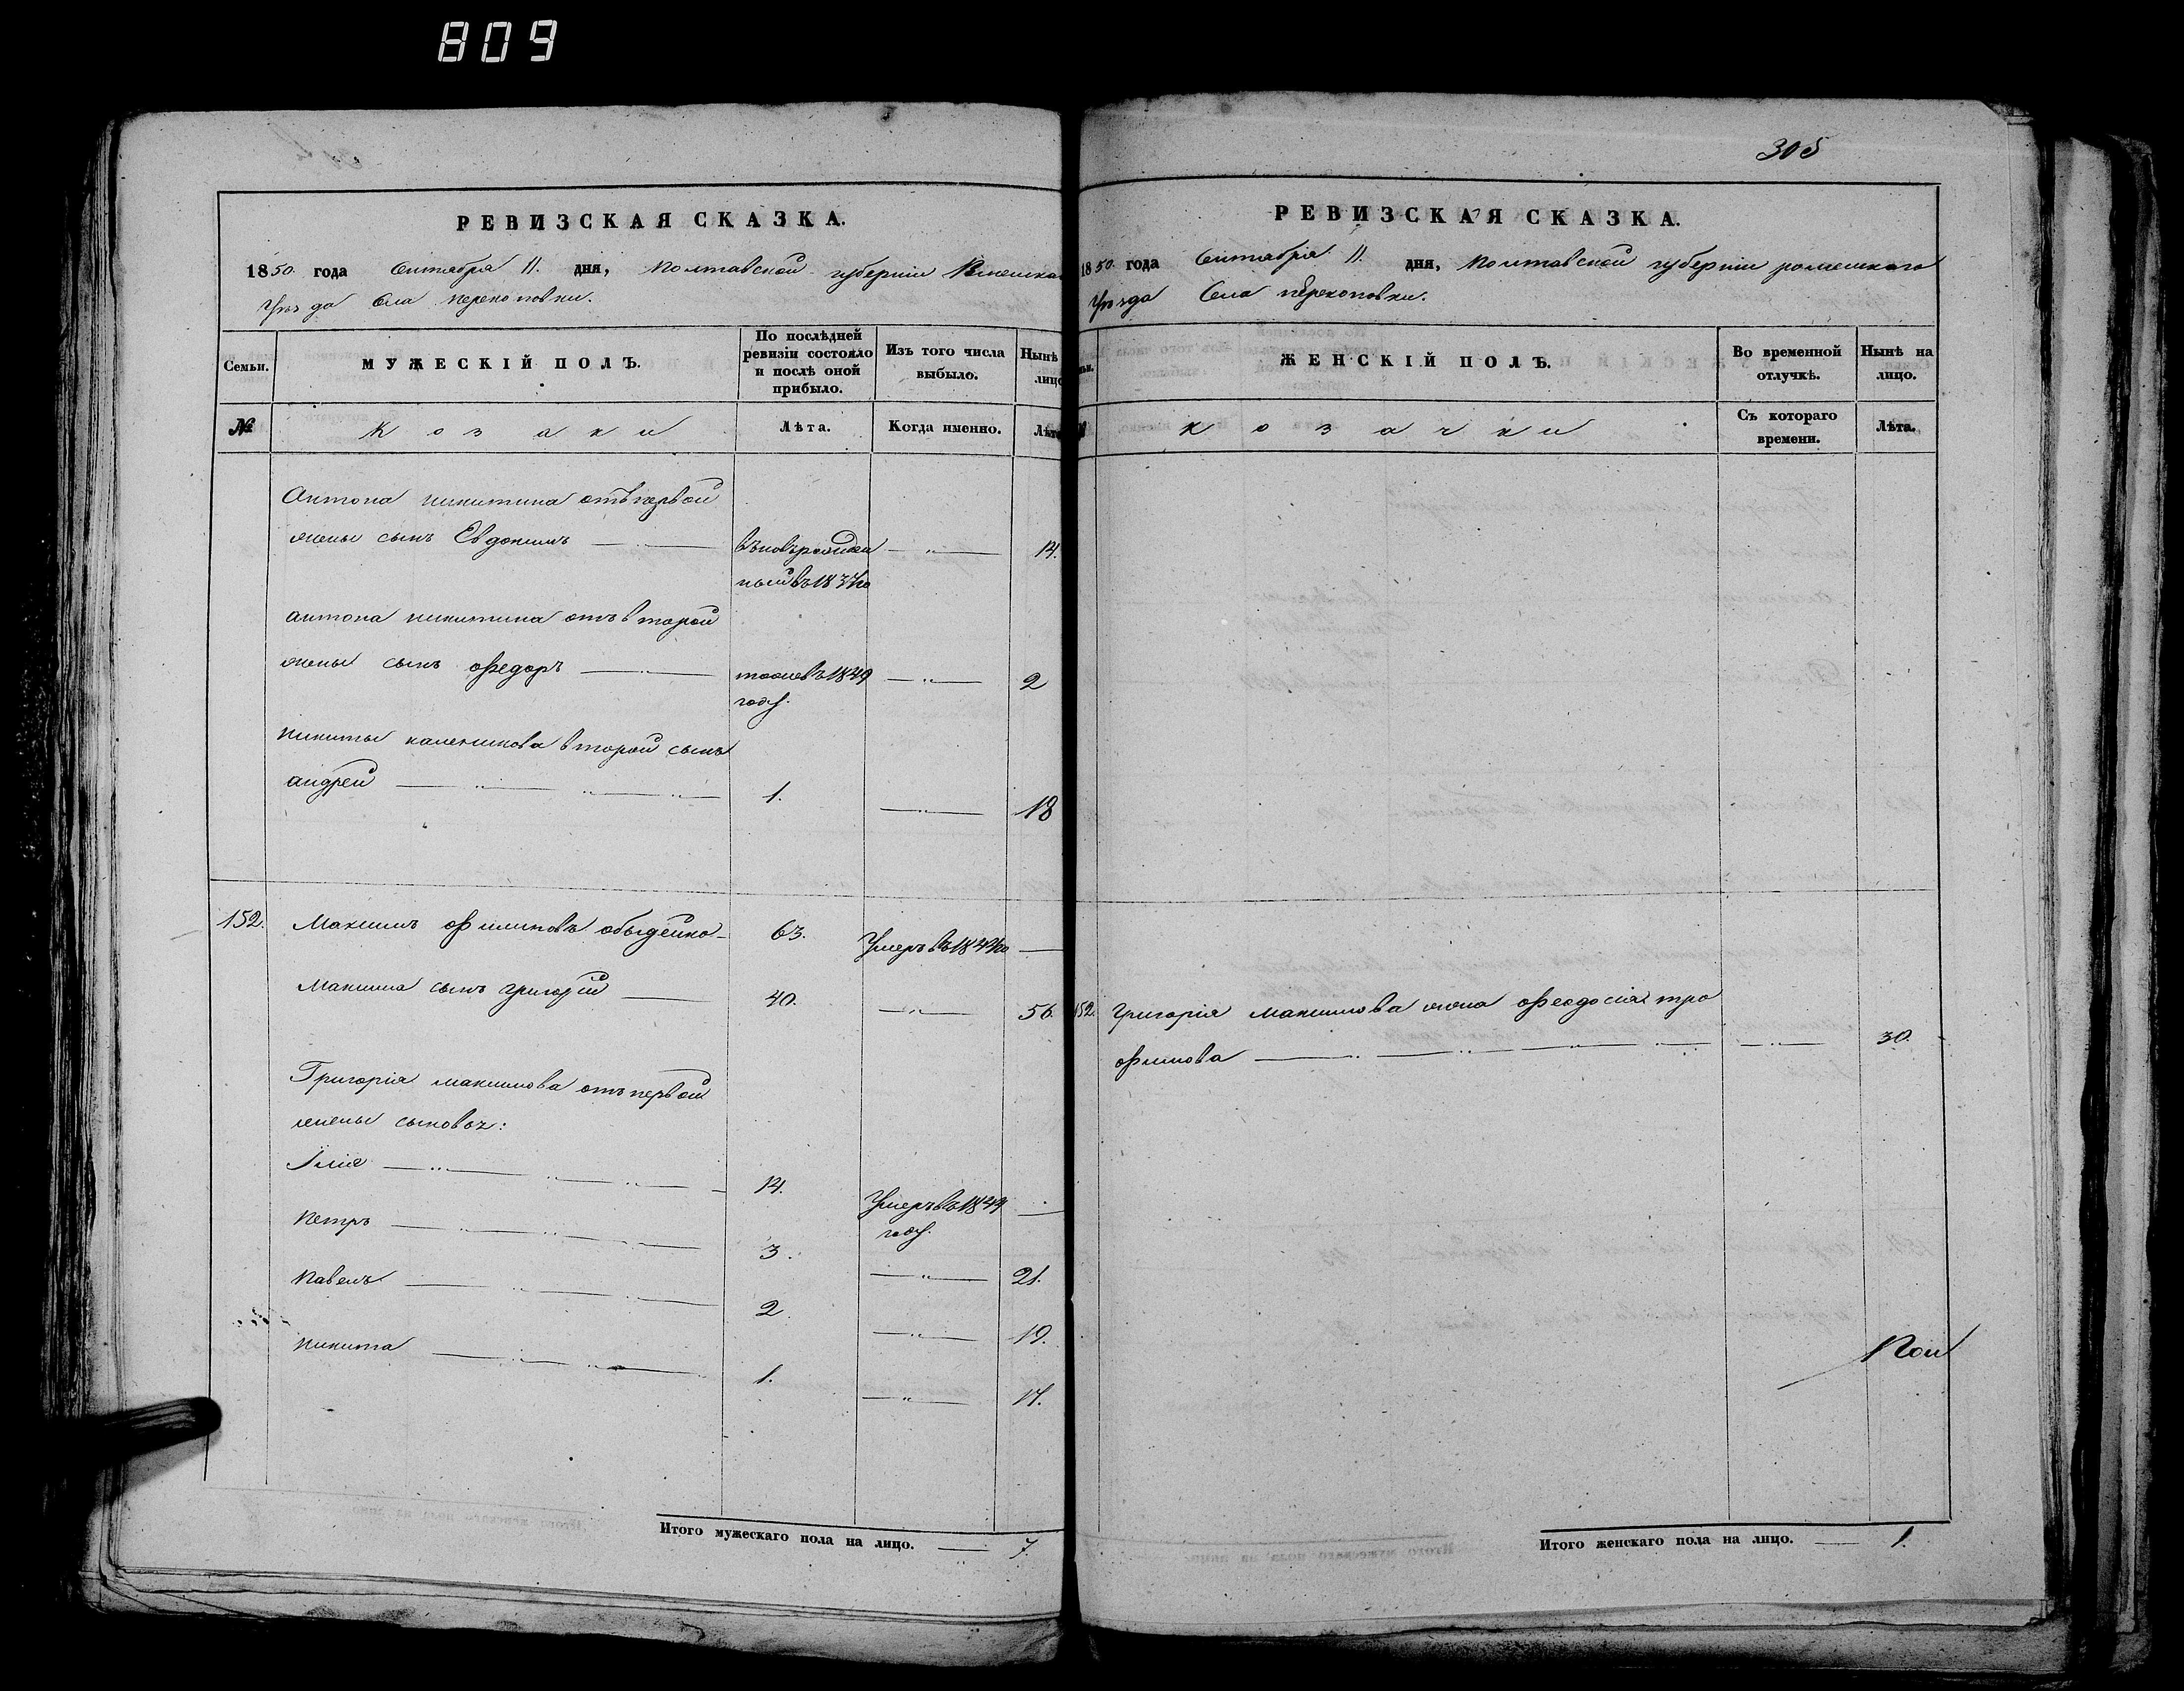 809
РЕВИЗСКАЯ СКАЗКА.
1850. года Сентября 11. дня, Полтавской губерніи
Уѣзда Села Перекоповки.
Семьи.
МУЖЕСКІЙ ПОЛЪ.
По послѣдней ревизіи состояло и послѣ оной прибыло.
Изъ того числа выбыло.
Нынѣ лицо
№
Козаки
Лѣта.
Когда именно.
Лѣта
Антона Никитина отъ первой
жены сынъ Евдокимъ 14.
въ 1837 го
Антона Никитина отъ второй
жены сынъ Ѳедоръ тоже въ 1849 2
году.
Никиты Каленикова второй сынъ
Андрей 1. 18
152. Максимъ Филиповъ 63. Умеръ въ
Максима сынъ Григорій 40. 56.
Григорія Максимова отъ первой
жены сыновья:
Илія 14. Умеръ въ 1844
году.
Петръ 3. 21.
Павелъ 2. 19.
Никита 1. 17.
Итого мужескаго пола на лицо. 7.
305
РЕВИЗСКАЯ СКАЗКА.
1850. года Сентября 11. дня, Полтавской губерніи роменскаго
Уѣзда Села Перекоповки.
ЖЕНСКІЙ ПОЛЪ.
Во временной отлучкѣ.
Нынѣ на лицо.
Козачки
Съ котораго времени.
Лѣта.
152. Григорія Максимова жена Ѳеодосія Тро
фимова 30.
Итого женскаго пола на лицо. 1.